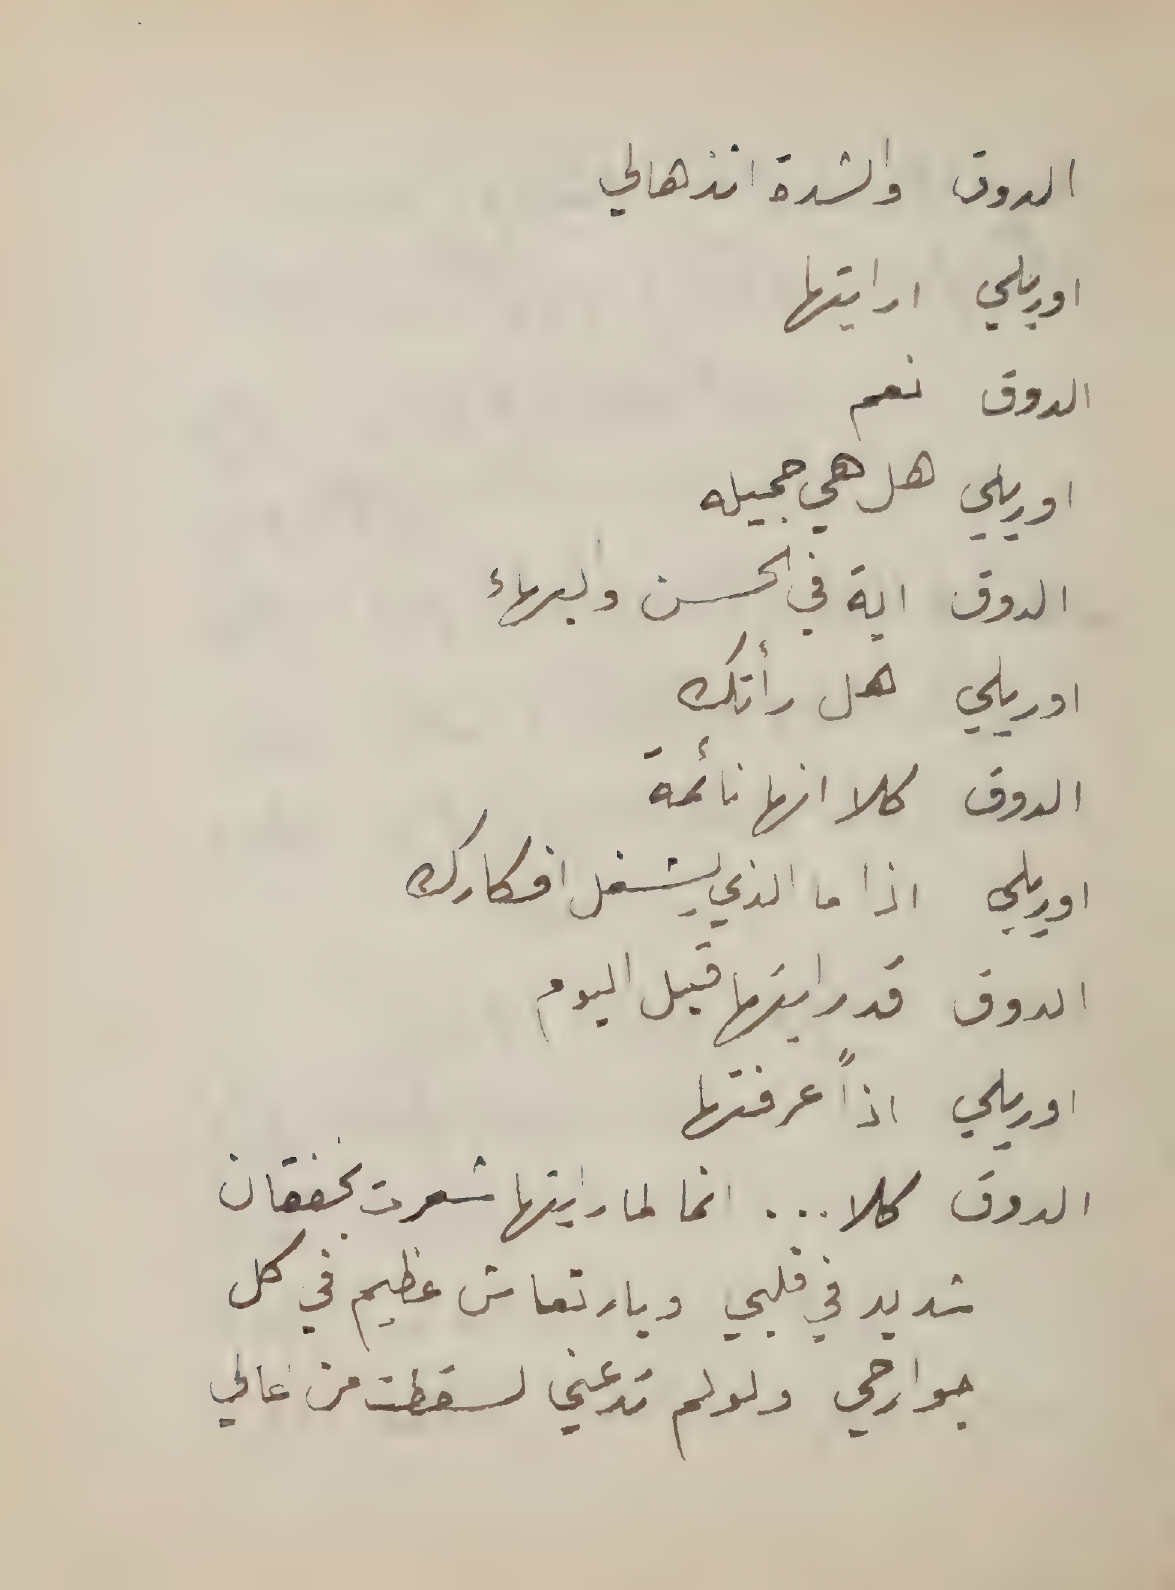 الدوق والشدة انذهالي
اوريلي ارايتها
الدوق نعم
اوريلي هل هي جميله
الدوق اية في الحسن والبهاء
اوريلي هل رأتك
الدوق كلا انها نائمة
اوريلي اذا ما الذي يشغل افكارك
الدوق قد رايتها قبل اليوم
اوريلي اذاً عرفتها
الدوق كلا ... انما لما رايتها شعرت بخفقان
شديد في قلبي وبارتعاش عظيم في كل
جوارحي ولو لم تدعني لسقطت من عالي